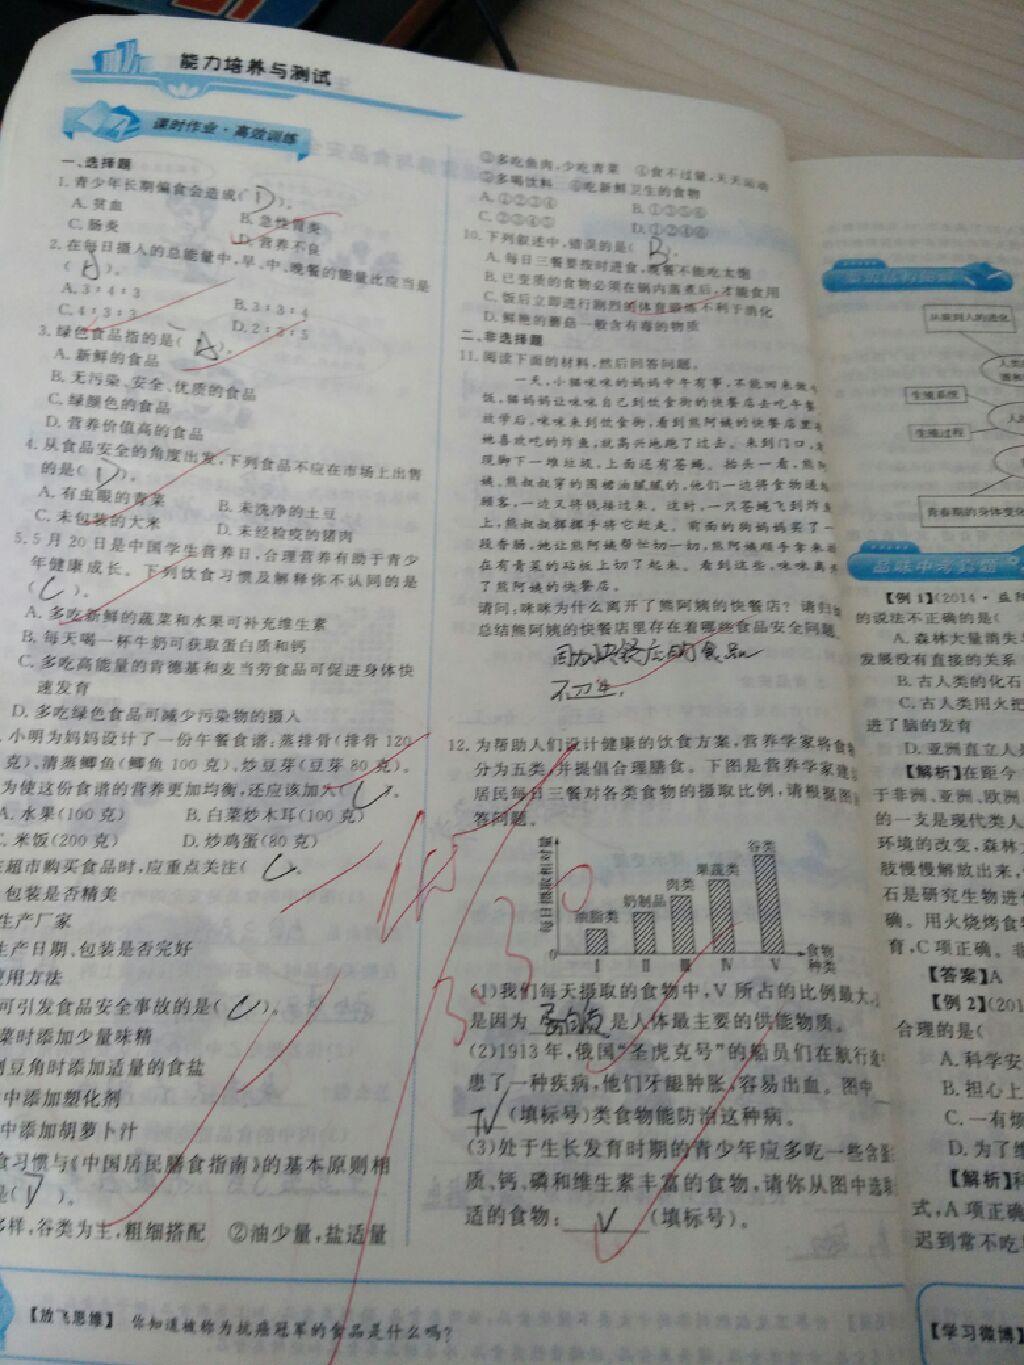 能力培养与测试
课时作业·高效训练
一、选择题
1. 青少年长期偏食会造成( D )。
A. 贫血 B. 急性胃炎
C. 肠炎 D. 营养不良
2. 在每日摄入的总能量中,早、中、晚餐的能量比应当是
( )。
A. 3∶4∶3 B. 3∶3∶4
C. 4∶3∶3 D. 2∶3∶5
3. 绿色食品指的是( )。
A. 新鲜的食品
B. 无污染、安全、优质的食品
C. 绿颜色的食品
D. 营养价值高的食品
4. 从食品安全的角度出发,下列食品不应在市场上出售
的是( D )。
A. 有虫眼的青菜 B. 未洗净的土豆
C. 未包装的大米 D. 未经检疫的猪肉
5. 5 月 20 日是中国学生营养日,合理营养有助于青少
年健康成长。下列饮食习惯及解释你不认同的是
( C )。
A. 多吃新鲜的蔬菜和水果可补充维生素
B. 每天喝一杯牛奶可获取蛋白质和钙
C. 多吃高能量的肯德基和麦当劳食品可促进身体快
速发育
D. 多吃绿色食品可减少污染物的摄入
小明为妈妈设计了一份午餐食谱:蒸排骨(排骨 120
克)、清蒸鲫鱼(鲫鱼 100 克)、炒豆芽(豆芽 80 克)。
为使这份食谱的营养更加均衡,还应该加入( C )。
A. 水果(100 克) B. 白菜炒木耳(100 克)
C. 米饭(200 克) D. 炒鸡蛋(80 克)
在超市购买食品时,应重点关注( C )。
包装是否精美
生产厂家
生产日期、包装是否完好
使用方法
可引发食品安全事故的是( C )。
菜时添加少量味精
豆角时添加适量的食盐
中添加塑化剂
中添加胡萝卜汁
食习惯与《中国居民膳食指南》的基本原则相
是( D )。
多样,谷类为主,粗细搭配 ②油少量,盐适量
③多吃鱼肉,少吃青菜 ④食不过量,天天运动
⑤多喝饮料 ⑥吃新鲜卫生的食物
A. ①②③④ B. ①③⑤⑥
C. ②③④⑤ D. ①②④⑥
10. 下列叙述中,错误的是( B )。
A. 每日三餐要按时进食,晚餐不能吃太饱
B. 已变质的食物必须在锅内蒸煮后,才能食用
C. 饭后立即进行剧烈的体育锻炼不利于消化
D. 鲜艳的蘑菇一般含有毒的物质
二、非选择题
11. 阅读下面的材料,然后回答问题。
一天,小猫咪咪的妈妈中午有事,不能回来做午
饭,猫妈妈让咪咪自己到饮食街的快餐店去吃午餐
放学后,咪咪来到饮食街,看到熊阿姨的快餐店里有
她喜欢吃的炸鱼,就高兴地跑了过去。来到门口,发
现脚下一堆垃圾,上面还有苍蝇。抬头一看,熊阿
姨、熊叔叔穿的围裙油腻腻的,他们一边将食物递给
顾客,一边又将钱接过来。这时,一只苍蝇飞到炸鱼
上,熊叔叔挥挥手将它赶走。前面的狗妈妈买了一
段香肠,她让熊阿姨帮忙切一切,熊阿姨顺手拿来
在有青菜的砧板上切了起来。看到这些,咪咪离开
了熊阿姨的快餐店。
请问:咪咪为什么离开了熊阿姨的快餐店?请归
总结熊阿姨的快餐店里存在着哪些食品安全问题
因为快餐店的食品
不卫生.
12. 为帮助人们设计健康的饮食方案,营养学家将食物
分为五类,并提倡合理膳食。下图是营养学家建议
居民每日三餐对各类食物的摄取比例,请根据图
答问题。
每日摄取相对量
油脂类 奶制品 肉类 果蔬类 谷类
0 Ⅰ Ⅱ Ⅲ Ⅳ Ⅴ 食物
种类
(1)我们每天摄取的食物中,Ⅴ 所占的比例最大,
是因为 蛋白质 是人体最主要的供能物质。
(2)1913 年,俄国“圣虎克号”的船员们在航行途
患了一种疾病,他们牙龈肿胀、容易出血。图中
Ⅳ (填标号)类食物能防治这种病。
(3)处于生长发育时期的青少年应多吃一些含蛋
质、钙、磷和维生素丰富的食物,请你从图中选
适的食物: V (填标号)。
【放飞思维】 你知道被称为抗癌冠军的食品是什么吗?
从猿到人的进化
生殖系统
生殖过程
青春期的身体变化
品味中考真题
【例 1】(2014·益阳
的说法不正确的是(
A. 森林大量消失
发展没有直接的关系
B. 古人类的化石
C. 古人类用火把
进了脑的发育
D. 亚洲直立人
【解析】在距今
于非洲、亚洲、欧洲
的一支是现代类人
环境的改变,森林
肢慢慢解放出来,
石是研究生物进
确。用火烧烤食
育,C 项正确。
【答案】A
【例 2】(201
合理的是(
A. 科学安
B. 担心上
C. 一有烦
D. 为了
【解析】
式,A 项正确
迟到常不吃
【学习微博】